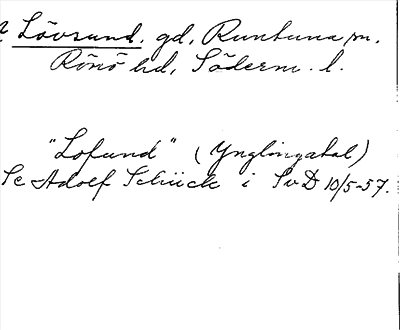 Lövsund. gd, Runtuna sn.
Rönö hd, Söderm. l.
"Lofund" (Ynglingatal)
Se Adolf Schück i SvD 10/5-57.